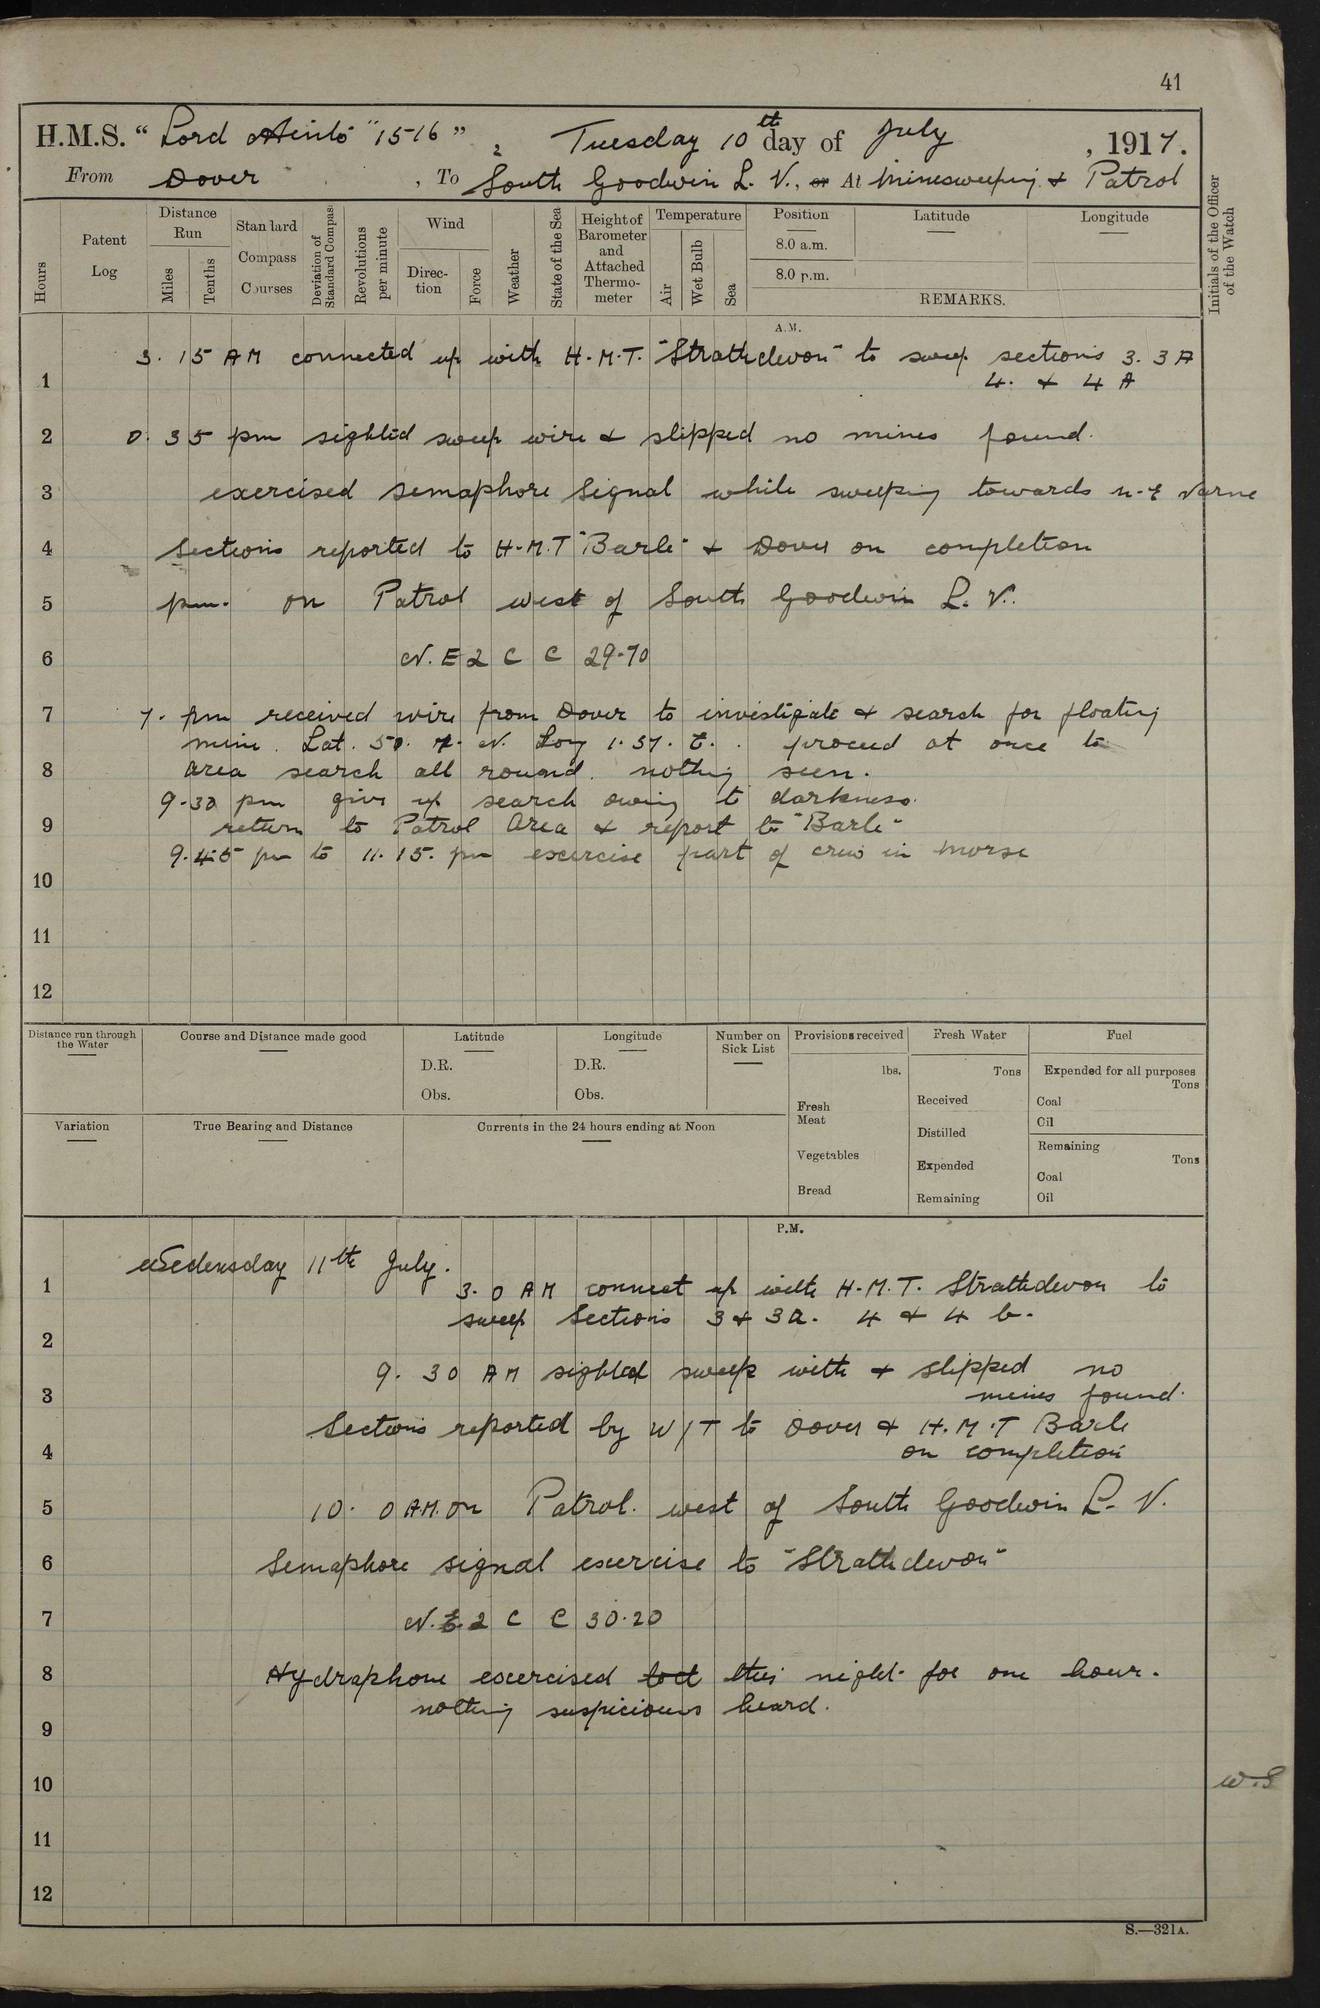 41
H.M.S. “ Lord Minto "1516 ” , Tuesday 10th day of July , 1917.
From Dover , To South Goodwin L. V., or At Minesweeping & Patrol
Hours
Patent Log
Distance Run
Miles
Tenths
Standard Compass Courses
Deviation of Standard Compass
Revolutions per minute
Wind
Direction
Force
Weather
State of the Sea
Height of Barometer and Attached Thermometer
Temperature
Air
Wet Bulb
Sea
Position
8.0 a.m.
8.0 p.m.
Latitude
Longitude
REMARKS.
Initials of the Officer of the Watch
A.M.
3. 15 AM connected up with H.M.T. "Strathdevon" to sweep sections 3. 3A
1 4. & 4 A
2 0. 35 pm sighted sweep wire & slipped no mines found.
3 exercised semaphore signal while sweeping towards N.E Varne
4 Sections reported to H.M.T "Barle" & Dover on completion
5 pm. on Patrol west of South Goodwin L. V.
6 N. E 2 C C 29.70
7 7. pm received wire from Dover to investigate & search for floating
mine. Lat. N. Long 1.37. E. . proceed at once to
8 area search all round. nothing seen.
9.30 pm give up search owing to darkness.
9 return to Patrol Area & report to "Barle"
9.45 pm to 11.15. pm exercise part of crew in morse
10
11
12
Distance run through the Water
Course and Distance made good
Latitude
D.R.
Obs.
Longitude
D.R.
Obs.
Number on Sick List
Provisions received
lbs.
Fresh Meat
Vegetables
Bread
Fresh Water
Tons
Received
Distilled
Expended
Remaining
Fuel
Expended for all purposes
Tons
Coal
Oil
Remaining
Tons
Coal
Oil
Variation
True Bearing and Distance
Currents in the 24 hours ending at Noon
P.M.
Wedensday 11th July.
1 3. 0 AM connect up with H.M.T. Strathdevon to
sweep Sections 3 & 3a. 4 & 4 b.
2
9. 30 AM sighted sweep with & slipped no
3 mines found.
Sections reported by W/T to Dover & H.M.T Barle
4 on completion
5 10. 0 AM. on Patrol. west of South Goodwin L. V.
6 Semaphore signal exercise to "Strathdevon"
7 N. E. 2 C C 30.20
8 Hydraphone exercised this night for one hour.
nothing suspicious heard.
9
10 W.S
11
12
S.—321A.